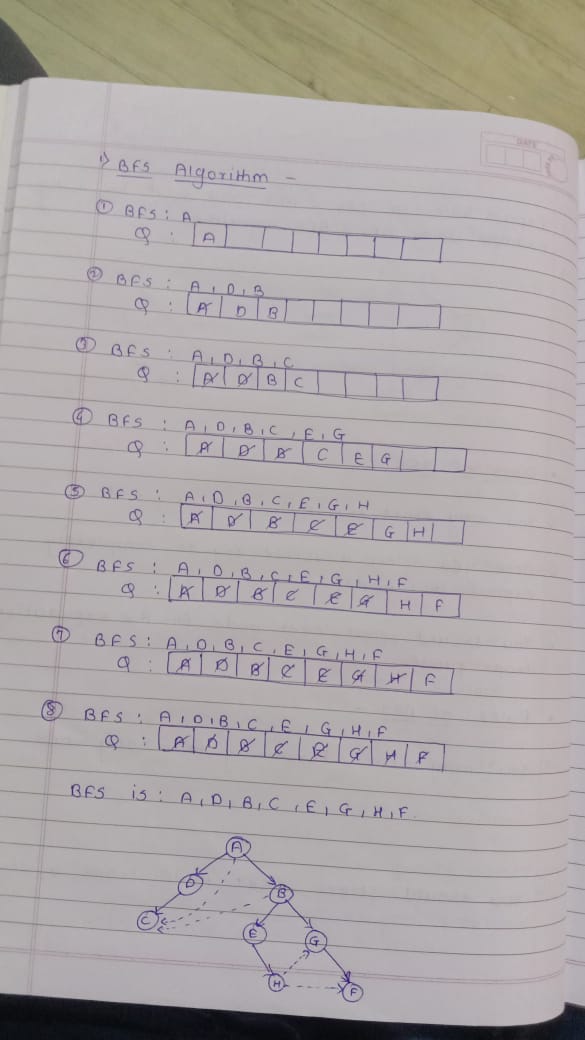 DATE
1) BFS Algorithm -
① BFS : A
Q : A
② BFS : A, D, B
Q : A D B
③ BFS : A, D, B, C
Q : A D B C
④ BFS : A, D, B, C, E, G
Q : A D B C E G
⑤ BFS : A, D, B, C, E, G, H
Q : A D B C E G H
⑥ BFS : A, D, B, C, E, G, H, F
Q : A D B C E G H F
⑦ BFS : A, D, B, C, E, G, H, F
Q : A D B C E G H F
⑧ BFS : A, D, B, C, E, G, H, F
Q : A D B C E G H F
BFS is : A, D, B, C, E, G, H, F.
A
D
B
C
E
G
H
F